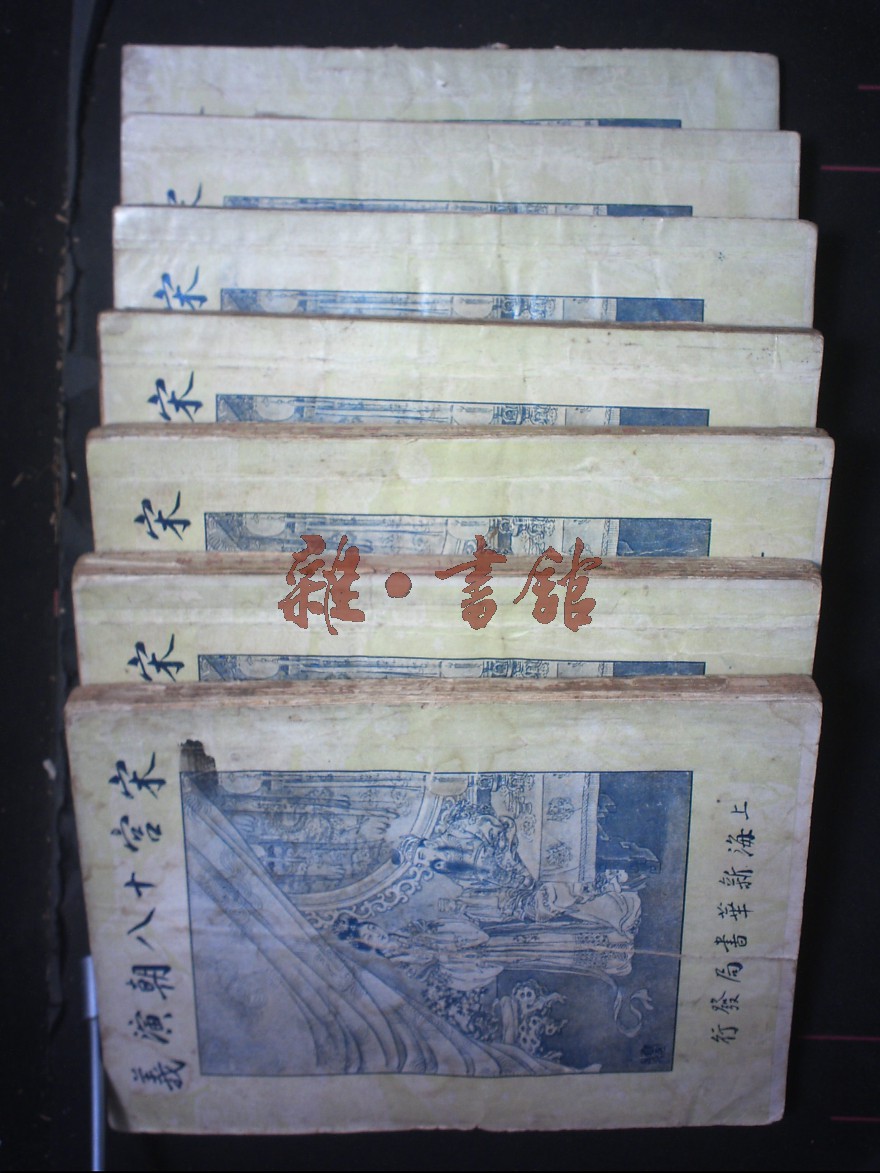 宋
宋
宋
宋
宋
雜·書館
宋宮十八朝演義
上海新華書局發行